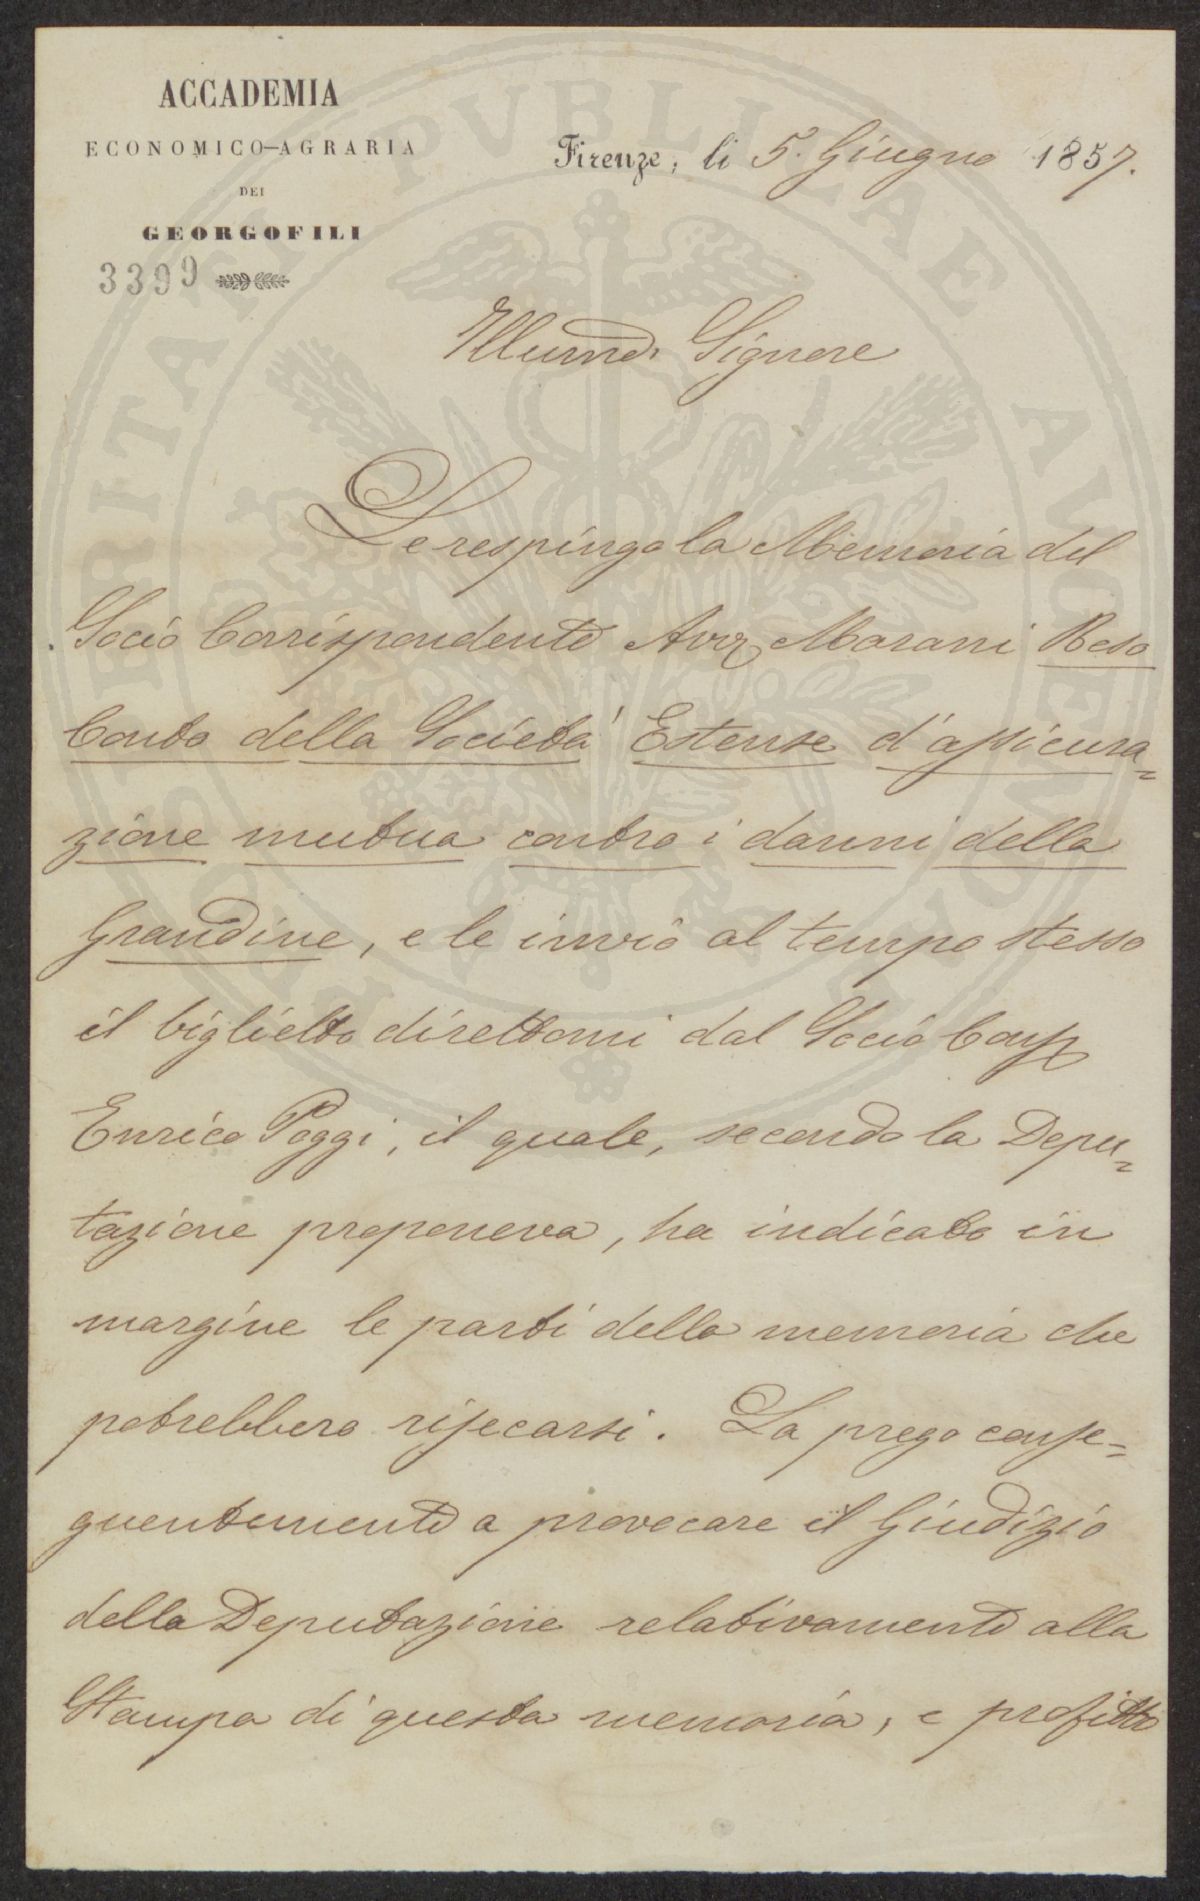 ACCADEMIA
ECONOMICO-AGRARIA
DEI
GEORGOFILI
3399
Firenze, li 5. Giugno 1857.
Illumo. Signore
Le respingo la Memoria del
Socio Corrispondente Avv. Morani Reso
Conto della Società Estense d'assicura=
zione mutua contro i danni della
Grandine, e le invio al tempo stesso
il biglietto direttomi dal Socio Corrisp
Enrico Poggi, il quale, secondo la Depu=
tazione proponeva, ha indicato in
margine le parti della memoria che
potrebbero risecarsi. La prego conse=
guentemente a provocare il Giudizio
della Deputazione relativamente alla
Stampa di questa memoria, e profitto